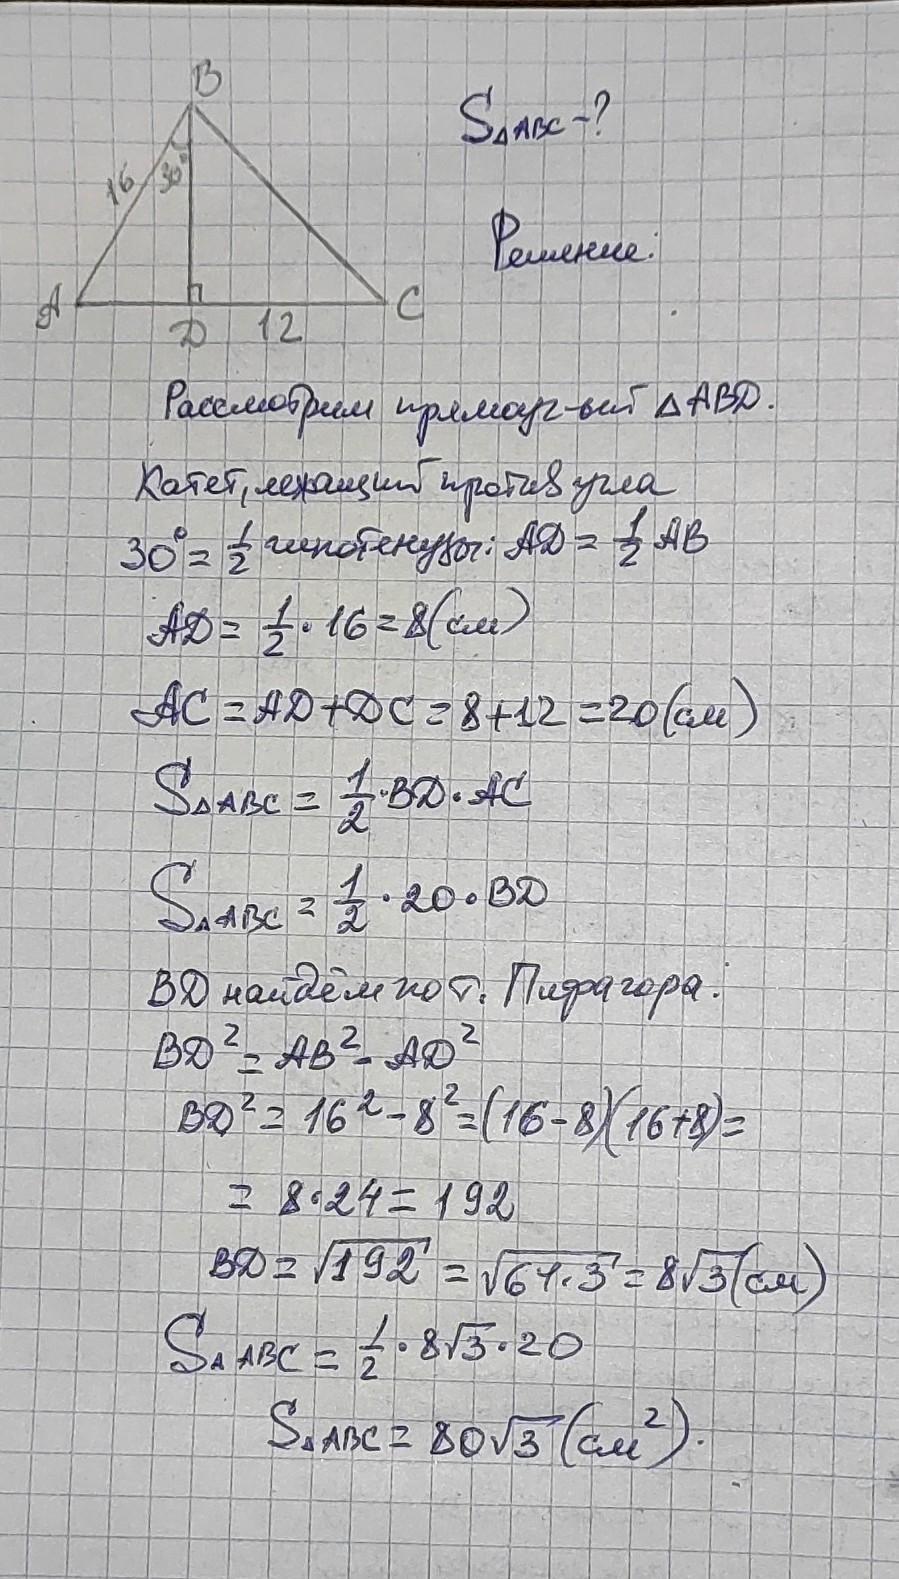 B
S△ABC - ?
16 30°
Решение:
A D 12 C
Рассмотрим прямоуг-ый △ABD.
Катет, лежащий против угла
30° = 1/2 гипотенузы: AD = 1/2 AB
AD = 1/2 · 16 = 8 (см)
AC = AD + DC = 8 + 12 = 20 (см)
S△ABC = 1/2 · BD · AC
S△ABC = 1/2 · 20 · BD
BD найдём по т. Пифагора:
BD² = AB² - AD²
BD² = 16² - 8² = (16 - 8)(16 + 8) =
= 8 · 24 = 192
BD = √192 = √64·3 = 8√3 (см)
S△ABC = 1/2 · 8√3 · 20
S△ABC = 80√3 (см²).